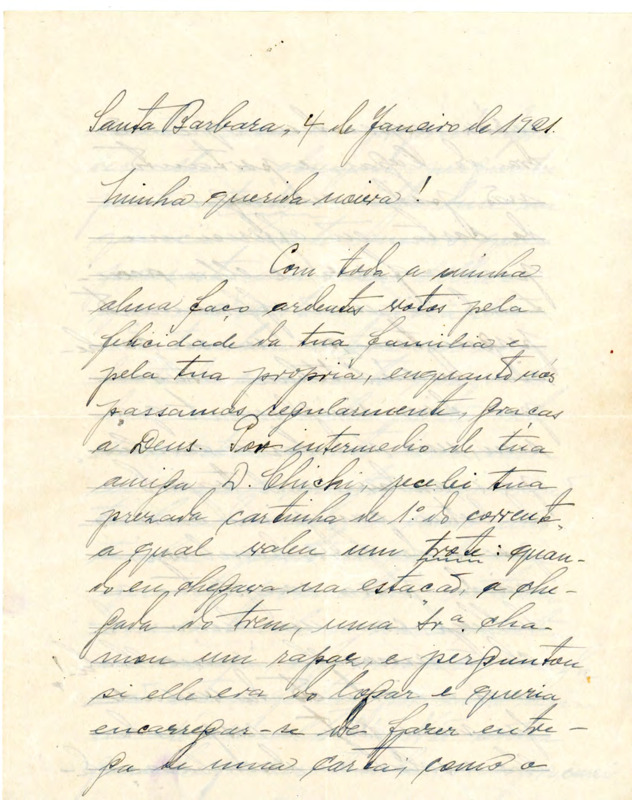 Santa Barbara, 4 de Janeiro de 1921.
Minha querida noiva!
Com toda a minha
alma faço ardentes votos pela
felicidade da tua familia e
pela tua propria, enquanto nós
passamos regularmente, graças
a Deus. Por intermedio de tua
amiga D. Chichi, recebi tua
prezada cartinha de 1º do corrente,
a qual valeu um trote: quan-
do eu chegava na estacão, a che-
gada do trem, uma Srª. cha-
mou um rapaz, e perguntou
si elle era do logar e queria
encarregar-se de fazer entre-
ga de uma carta; como o